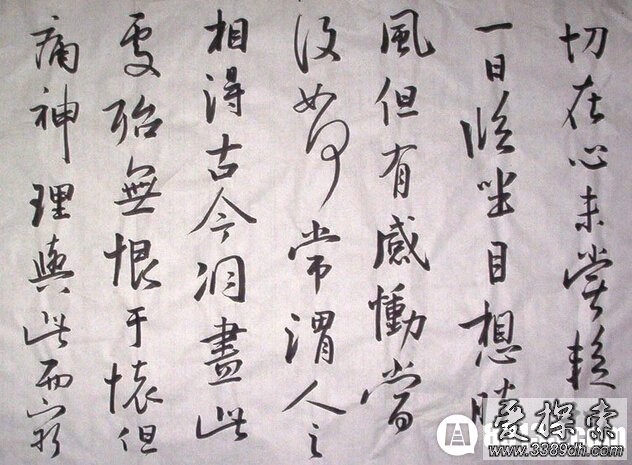 切在心未嘗輟
一日臨坐目想勝
風但有感慟當
復如何常謂人之
相得古今洞盡此
處殆無恨于懷但
痛神理與此而窮
爱探索
www.3389dh.com